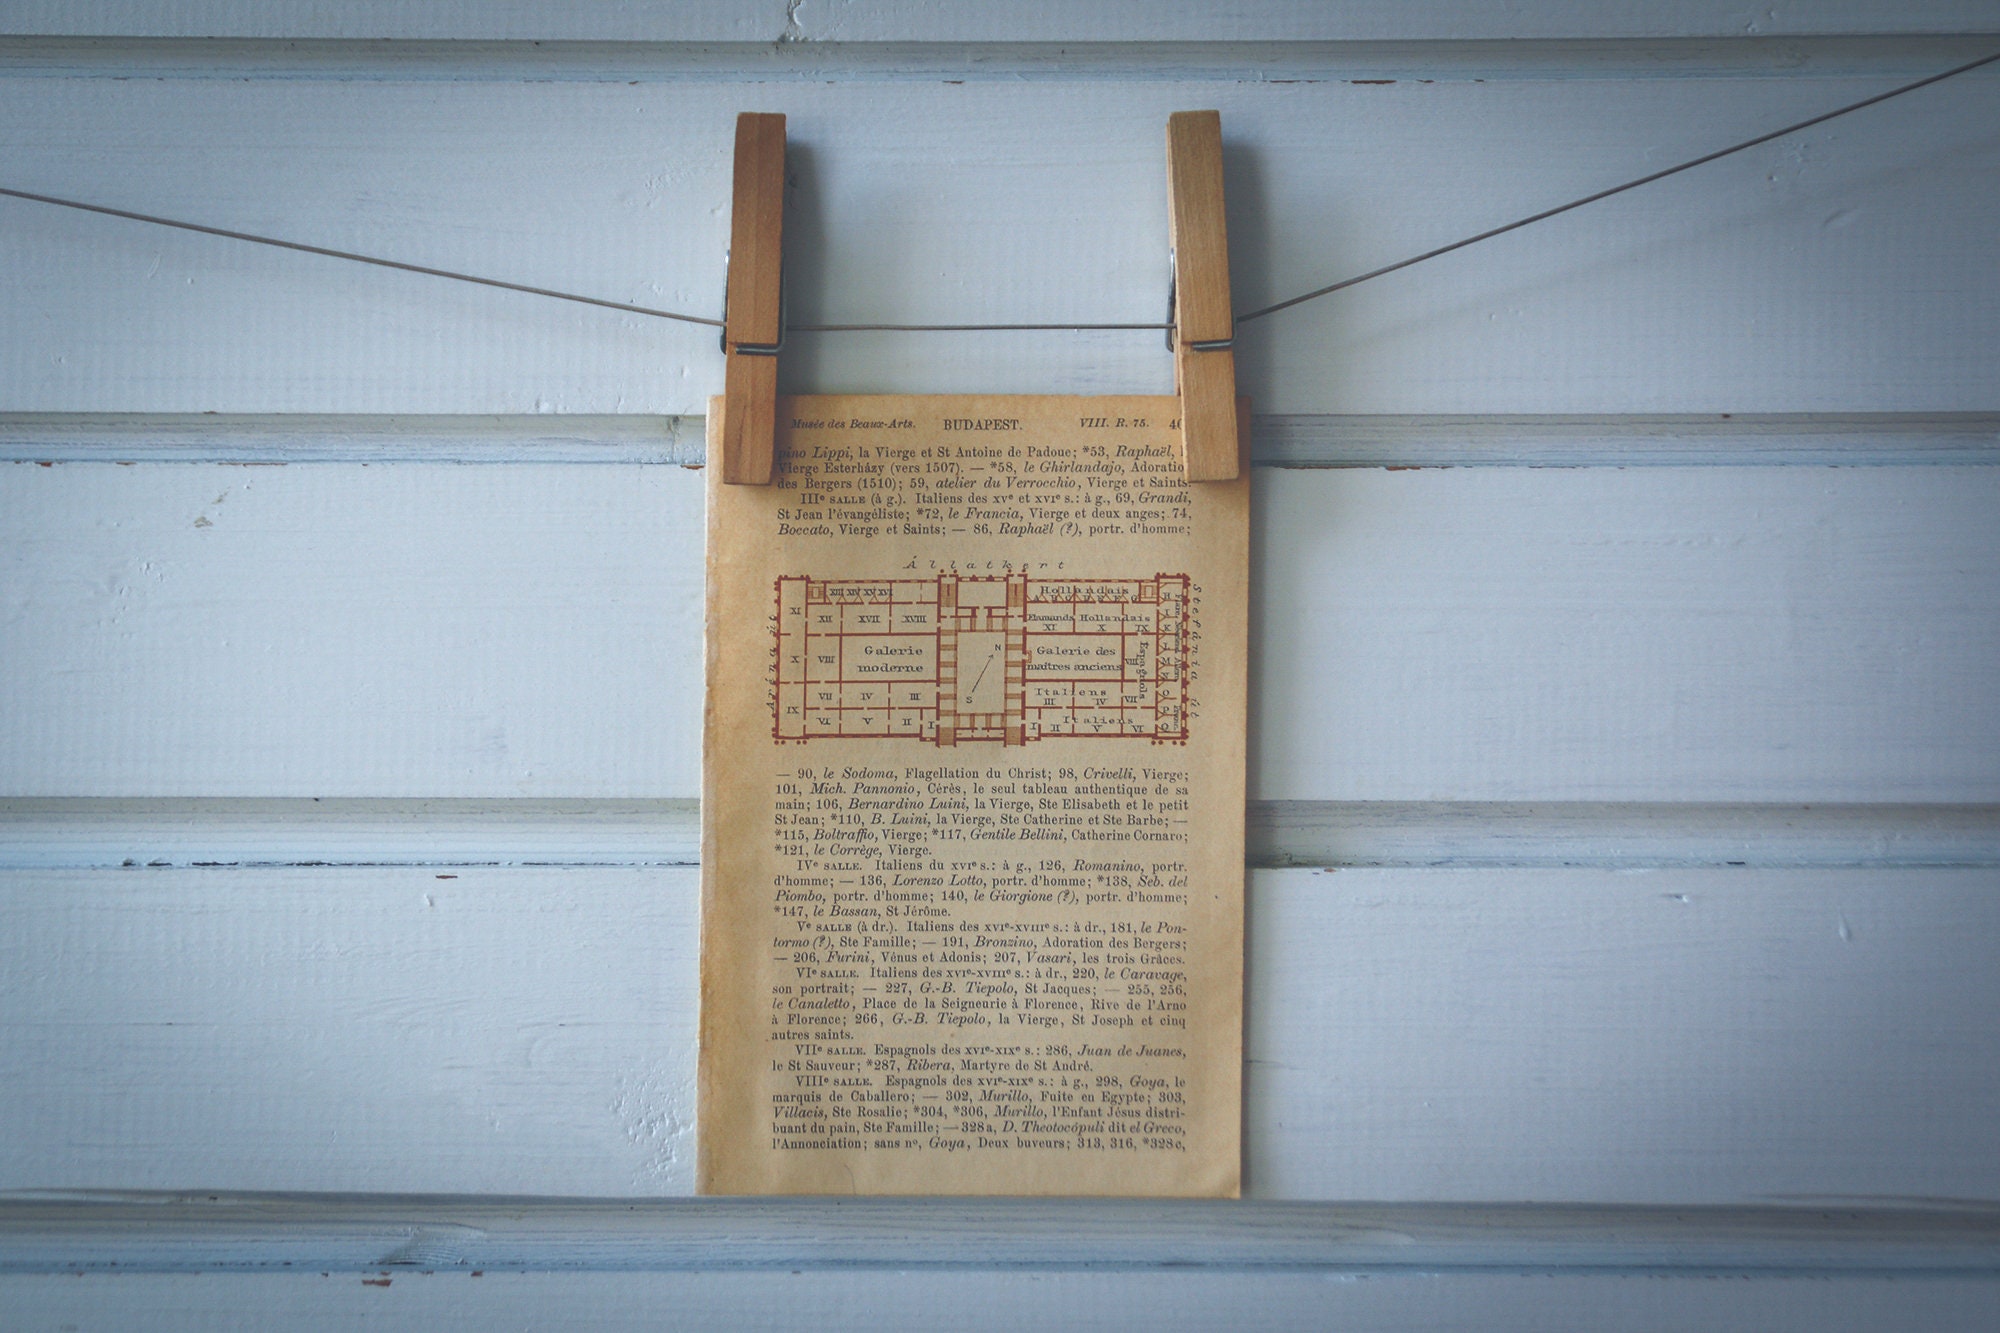 Musée des Beaux-Arts. BUDAPEST. VIII. R. 75.
Lippi, la Vierge et St Antoine de Padoue; *53, Raphaël,
Vierge Esterházy (vers 1507). — *58, le Ghirlandajo, Adoratio
des Bergers (1510); 59, atelier du Verrocchio, Vierge et Saints.
IIIe SALLE (à g.). Italiens des XVe et XVIe s.: à g., 69, Grandi,
St Jean l'évangéliste; *72, le Francia, Vierge et deux anges; 74,
Boccato, Vierge et Saints; — 86, Raphaël (?), portr. d'homme;
Állatkert
Aréna út
Stefánia út
XIII XIV XV XVI
Hollandais
A B C D E F G
XI
XII XVII XVIII
Flamands Hollandais
XI X IX
X
VIII
Galerie
moderne
N
S
Galerie des
maîtres anciens
VIII
Espagnols
VII IV III
Italiens
III IV VII
IX
VI V II I
Italiens
I II V VI
H
I
K
O
P
Q
— 90, le Sodoma, Flagellation du Christ; 98, Crivelli, Vierge;
101, Mich. Pannonio, Cérès, le seul tableau authentique de sa
main; 106, Bernardino Luini, la Vierge, Ste Elisabeth et le petit
St Jean; *110, B. Luini, la Vierge, Ste Catherine et Ste Barbe; —
*115, Boltraffio, Vierge; *117, Gentile Bellini, Catherine Cornaro;
*121, le Corrège, Vierge.
IVe SALLE. Italiens du XVIe s.: à g., 126, Romanino, portr.
d'homme; — 136, Lorenzo Lotto, portr. d'homme; *138, Seb. del
Piombo, portr. d'homme; 140, le Giorgione (?), portr. d'homme;
*147, le Bassan, St Jérôme.
Ve SALLE (à dr.). Italiens des XVIe-XVIIIe s.: à dr., 181, le Pon-
tormo (?), Ste Famille; — 191, Bronzino, Adoration des Bergers;
— 206, Furini, Vénus et Adonis; 207, Vasari, les trois Grâces.
VIe SALLE. Italiens des XVIe-XVIIIe s.: à dr., 220, le Caravage,
son portrait; — 227, G.-B. Tiepolo, St Jacques; — 255, 256,
le Canaletto, Place de la Seigneurie à Florence, Rive de l'Arno
à Florence; 266, G.-B. Tiepolo, la Vierge, St Joseph et cinq
autres saints.
VIIe SALLE. Espagnols des XVIe-XIXe s.: 286, Juan de Juanes,
le St Sauveur; *287, Ribera, Martyre de St André.
VIIIe SALLE. Espagnols des XVIe-XIXe s.: à g., 298, Goya, le
marquis de Caballero; — 302, Murillo, Fuite en Egypte; 303,
Villacis, Ste Rosalie; *304, *306, Murillo, l'Enfant Jésus distri-
buant du pain, Ste Famille; — 328a, D. Theotocópuli dit el Greco,
l'Annonciation; sans no, Goya, Deux buveurs; 313, 316, *328c,